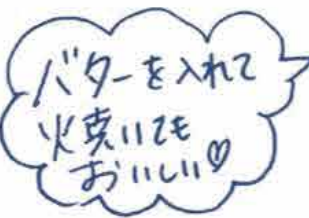 バターを入れて
焼いても
おいしい♡